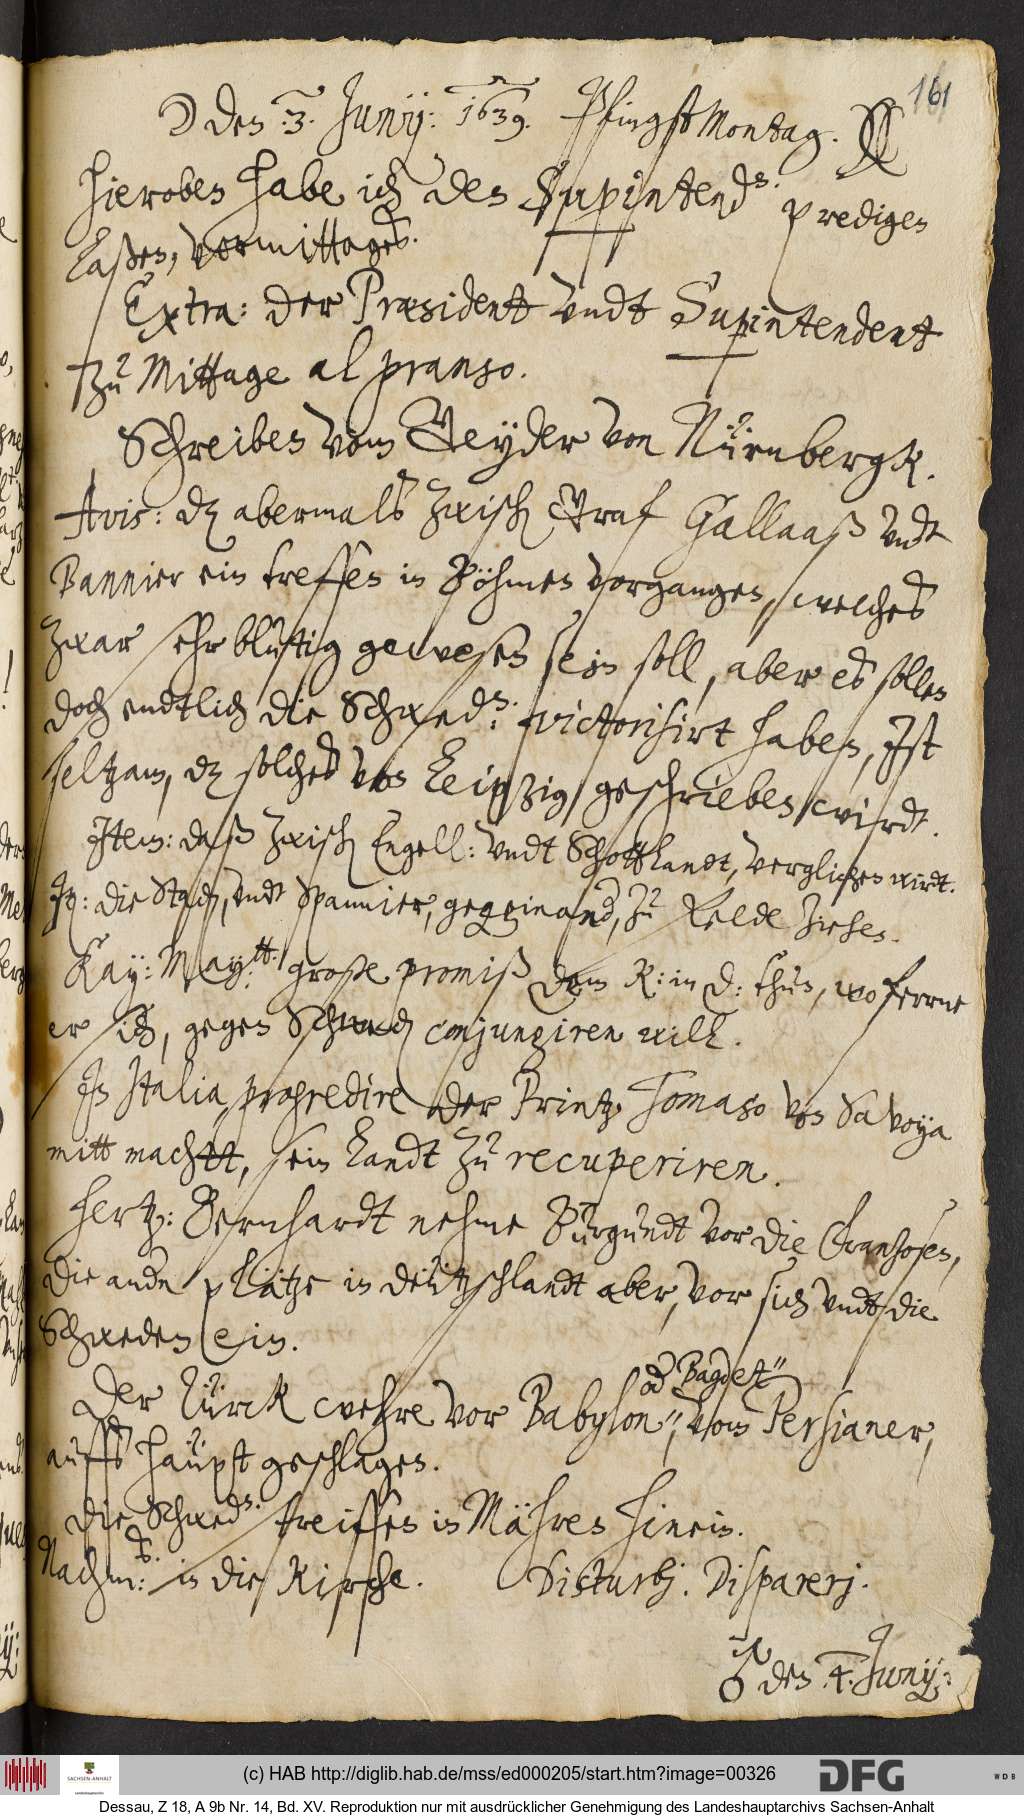 161
☽ den: 3. Junij: 1639. Pfingst Montag.
Hieroben habe ich den Supintend{s}: predigen
laßen, vormittages.
Extra: der Præsident vndt Supintendent
zu Mittage al pranso.
Schreiben vom Geÿder von Nürnbergk.
Avis: dz abermalß zwisch{en} Graf Gallaaß vndt
Bannier ein treffen in Böhmen vorgangen, welches
zwar sehr blutig gewesen sein soll, aber es sollen
doch endtlich die Schwed{n}: victorisirt haben, Ist
seltzam, dz solches von Leipzig geschrieben wirdt.
Item: daß zwisch{en} Engell: vndt Schottlandt, verglichen wirdt.
It: die Stad{en}, vndt Spannier, gegeinand, zu Felde ziehen.
Kay: May:{tt}: große promiß dem K: in D: thun, wo ferrne
er sich, gegen Schwed{en} conjungiren will.
In Italia, progredire der Printz Tomaso von Savoya
mitt machtt, sein Landt zu recuperiren.
Hertz: Bernhardt nehme Burgundt vor die Fransosen,
die andn plätze in deützschlandt aber, vor sich vndt die
Schweden ein.
od Bagdet"
Der Türck wehre vor Babylon", vom Persianer,
auffs haüpt geschlagen.
Die Schwed{n}: streiffen in Mähren hinein.
Nachm:{s}. in die Kirche. Disturbj. Disparerj.
♂ den 4. Junij:
(c) HAB http://diglib.hab.de/mss/ed000205/start.htm?image=00326
SACHSEN-ANHALT
DFG
WDB
Dessau, Z 18, A 9b Nr. 14, Bd. XV. Reproduktion nur mit ausdrücklicher Genehmigung des Landeshauptarchivs Sachsen-Anhalt